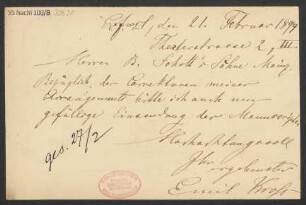 55 Nachl 100/B
Erfurt, den 21. Februar 1899
Theaterstrasse 2, III.
Herren B. Schott's Söhne Mainz.
Bezüglich der Correkturen meiner
Arrangements bitte ich auch um
gefällige Einsendung der Manuscripte.
Hochachtungsvoll
Ihr
ergebenster
Emil
ges. 27/2